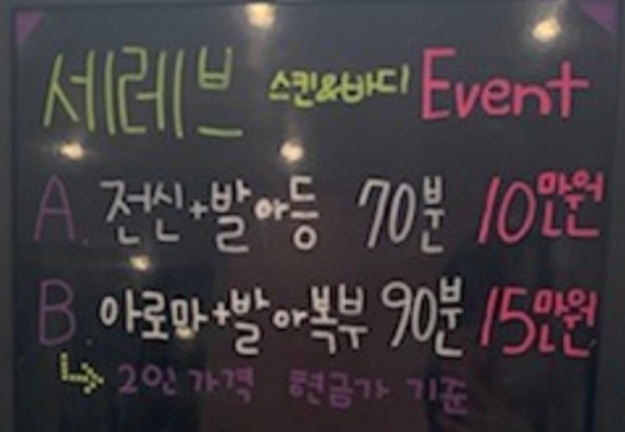 세레브 스킨&바디 Event
A. 전신+발 or 등 70분 10만원
B. 아로마+발 or 복부 90분 15만원
2인 가격 현금가 기준